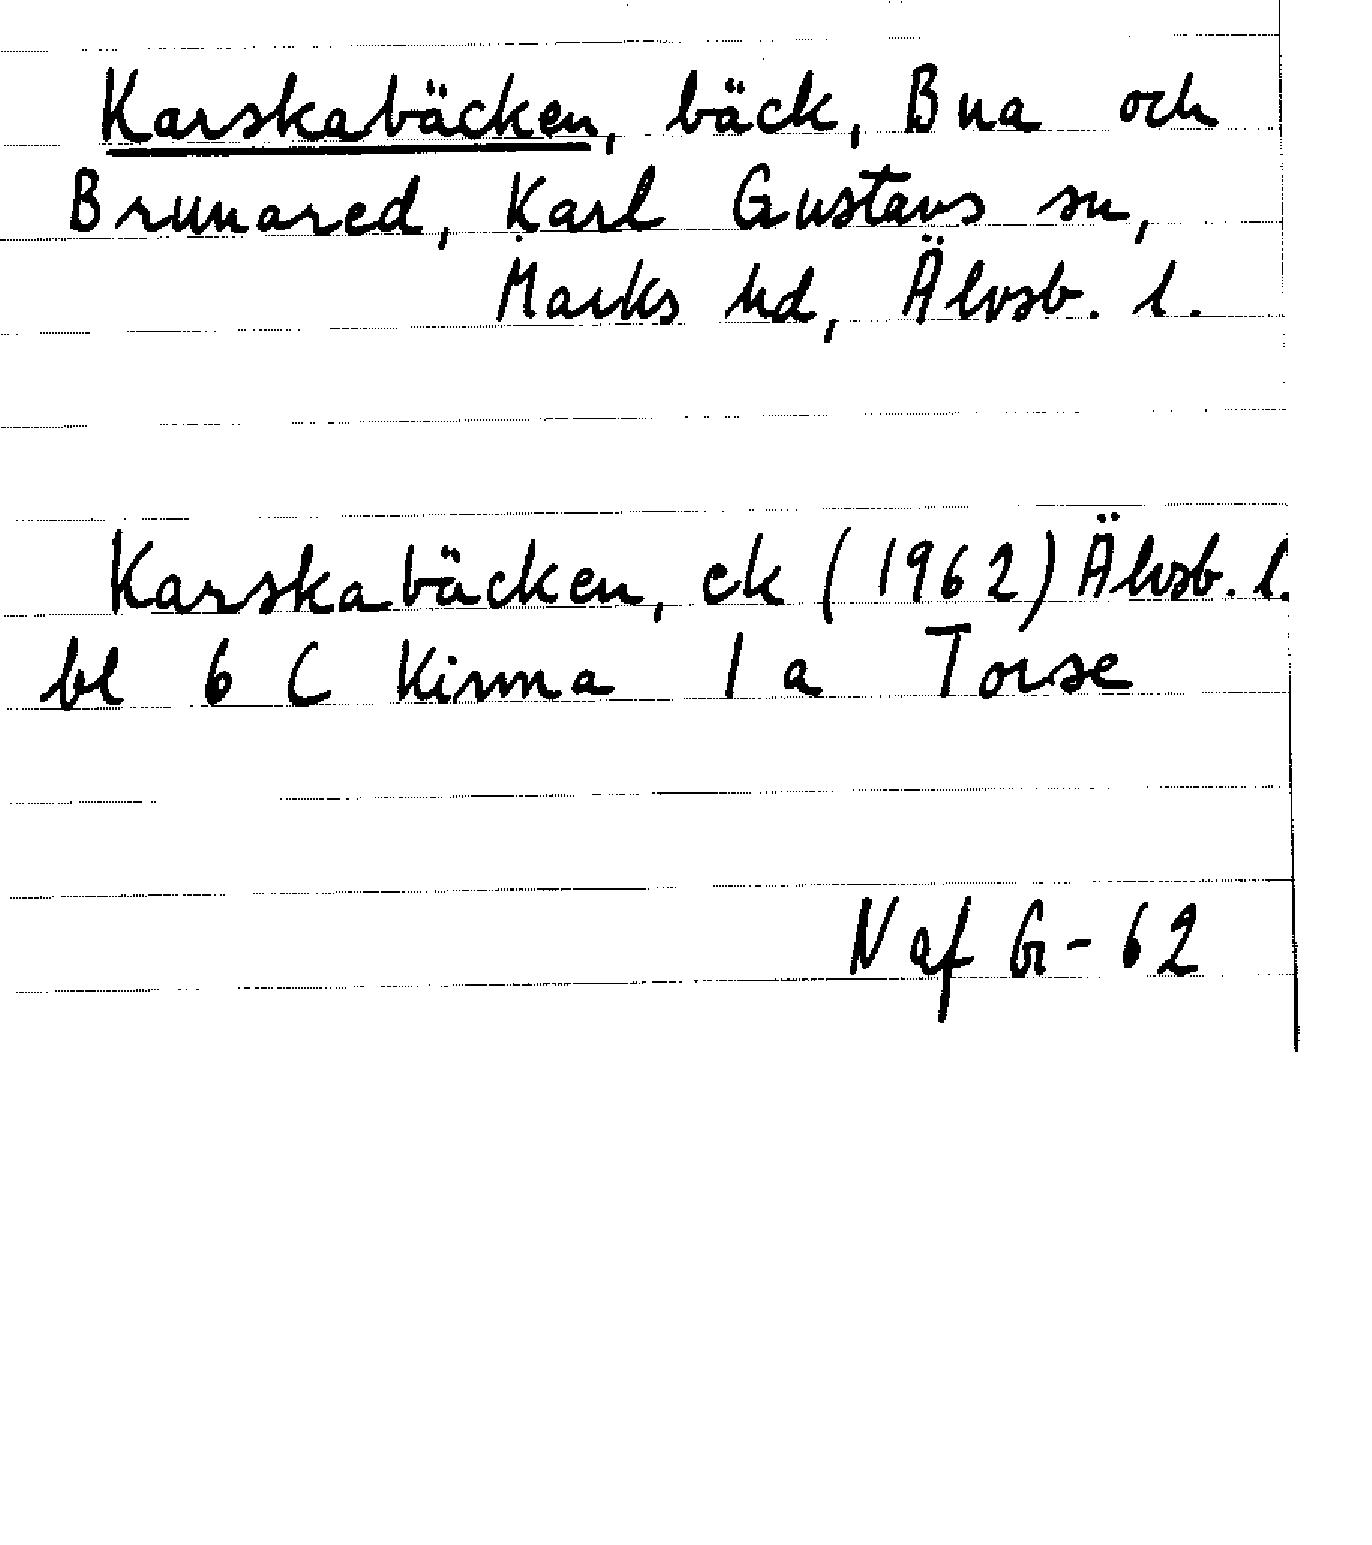 Karskabäcken, bäck, Bua och
Brunared, Karl Gustavs sn,
Marks hd, Älvsb. l.
Karskabäcken, ek (1962) Älvsb. l.
bl 6 C Kinna 1 a Torse
N af G-62